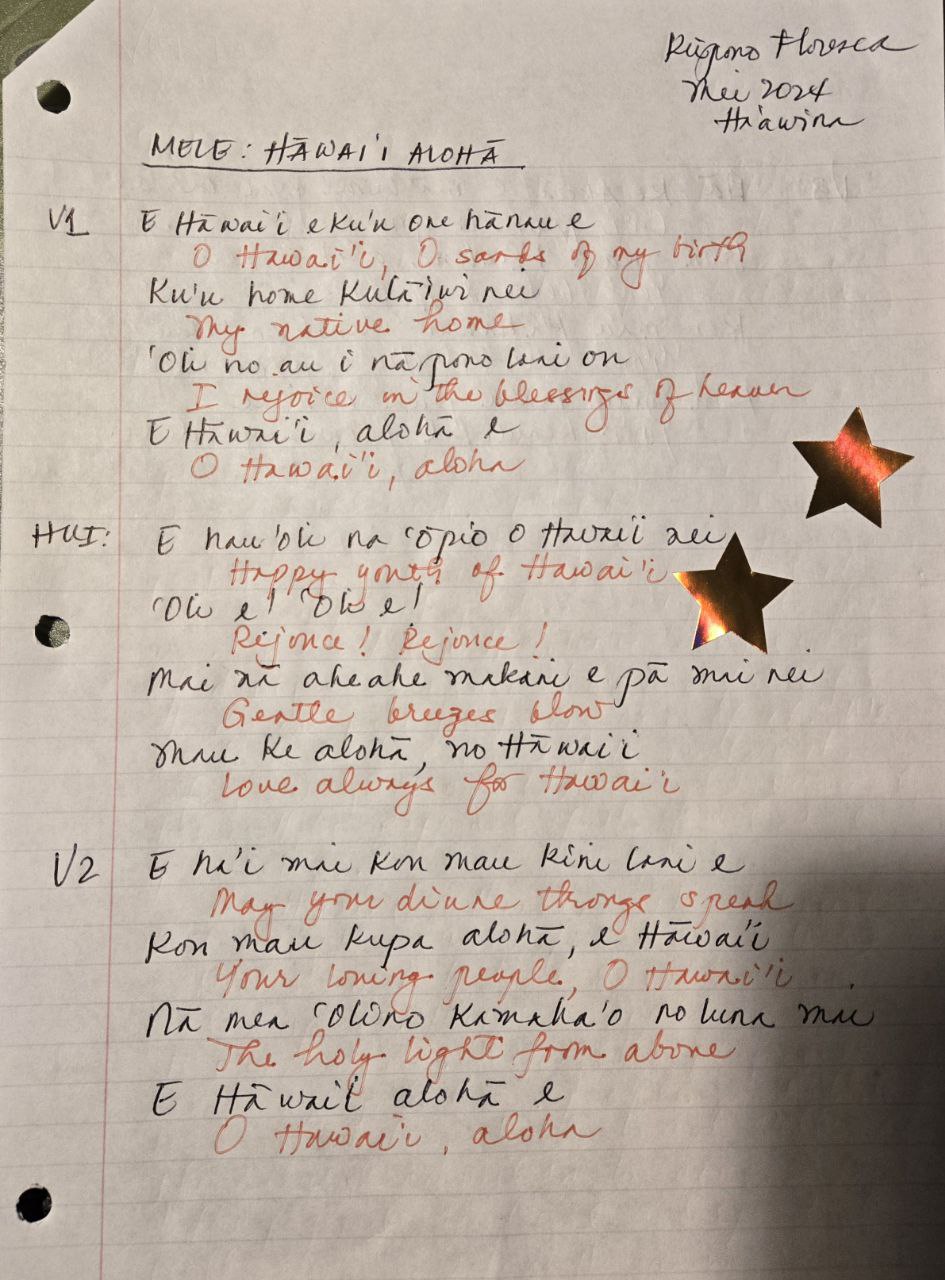 Floresca
Mei 2024
Ha'awina
MELE: HĀWAI'I ALOHĀ
V1 E Hāwai'i e ku'u one hānau e
O Hawai'i, O sands of my birth
Ku'u home Kulāiwi nei
My native home
'Oli no au i nā pono lani ou
I rejoice in the blessings of heaven
E Hāwai'i, alohā e
O Hawai'i, aloha
HUI: E hau'oli na 'ōpio O Hawai'i nei
Happy youth of Hawai'i
'Oli e! 'Oli e!
Rejoice! Rejoice!
Mai nā aheahe makani e pā mai nei
Gentle breezes blow
Mau ke alohā, no Hāwai'i
Love always for Hawai'i
V2 E ha'i mai kou mau kini lani e
May your divine throngs speak
Kou mau kupa alohā, e Hāwai'i
Your loving people, O Hawai'i
Nā mea 'ōlino kamaha'o no luna mai
The holy light from above
E Hāwai'i alohā e
O Hawai'i, aloha